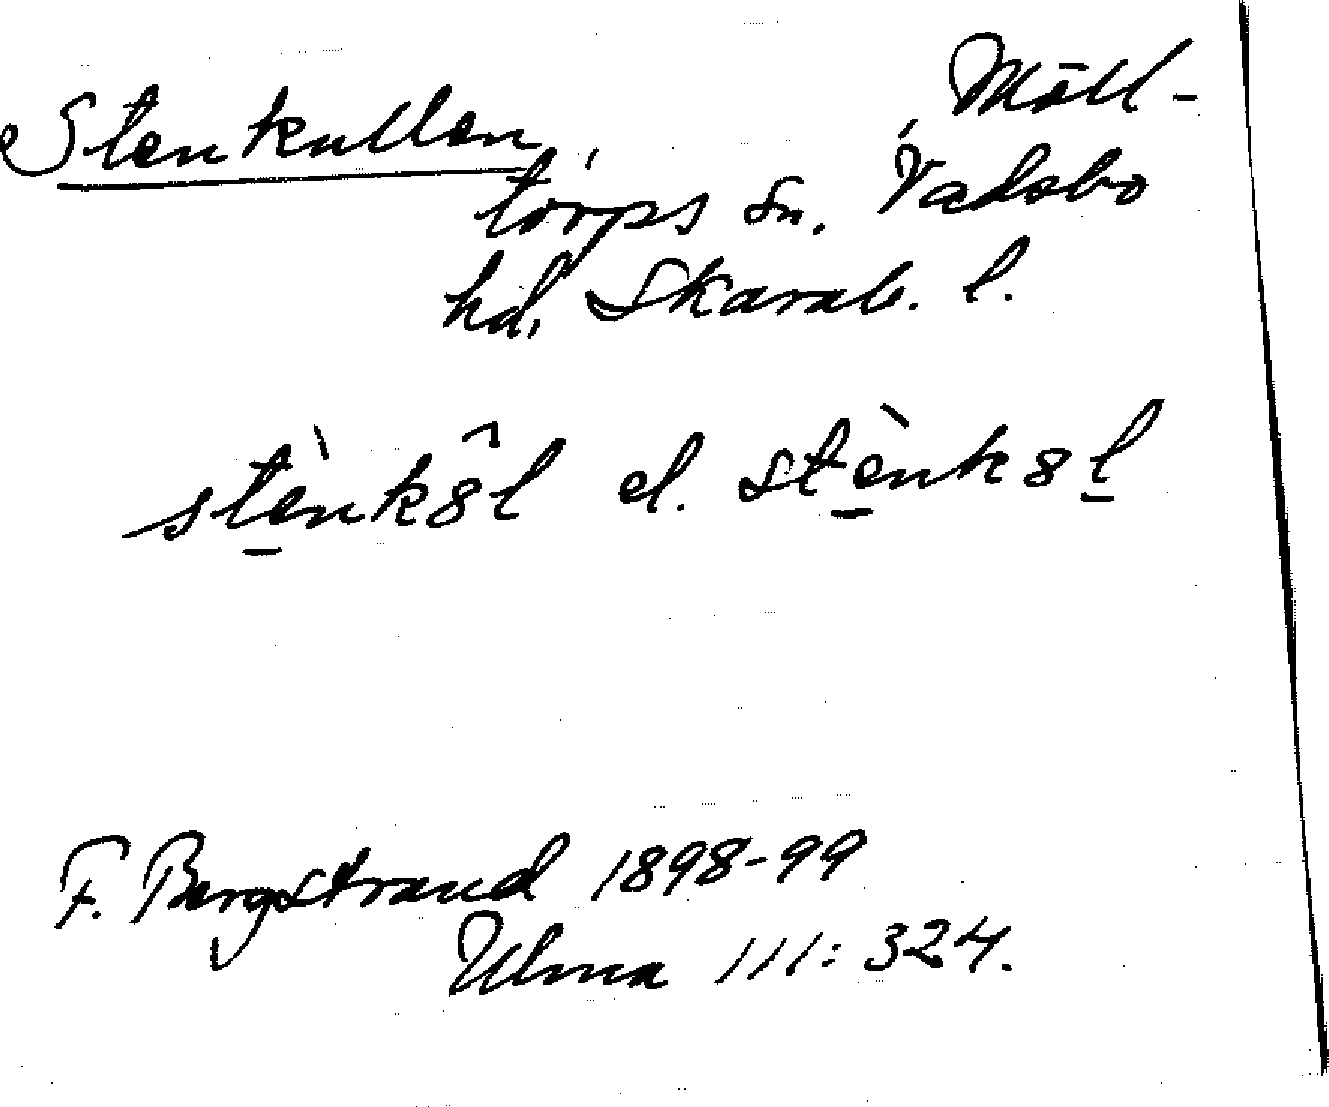 Stenkullen, Möll-
torps sn. Vadsbo
hd, Skarab. l.
stènkôl el. stènkol
F. Bergstrand 1898-99
Ulma 111: 324.